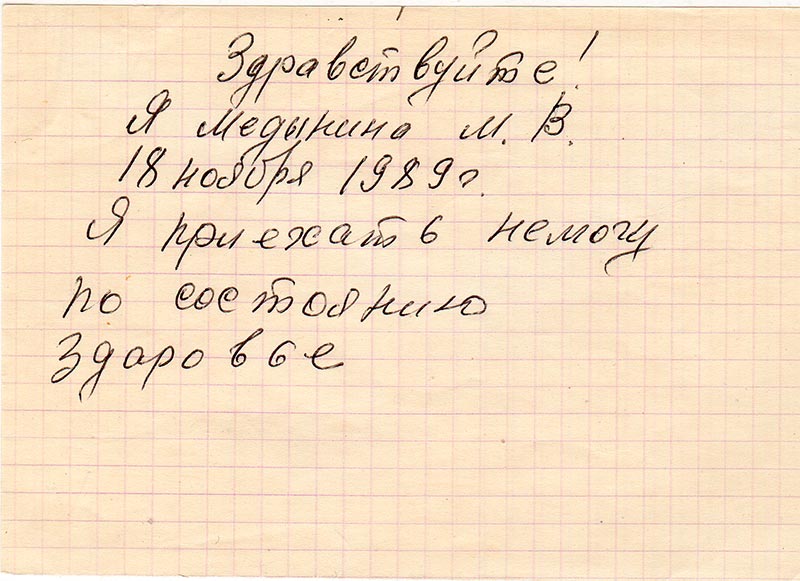 Здравствуйте!
Я Медынина М. В.
18 ноября 1989 г.
Я приехать немогу
по состоянию
Здаровье